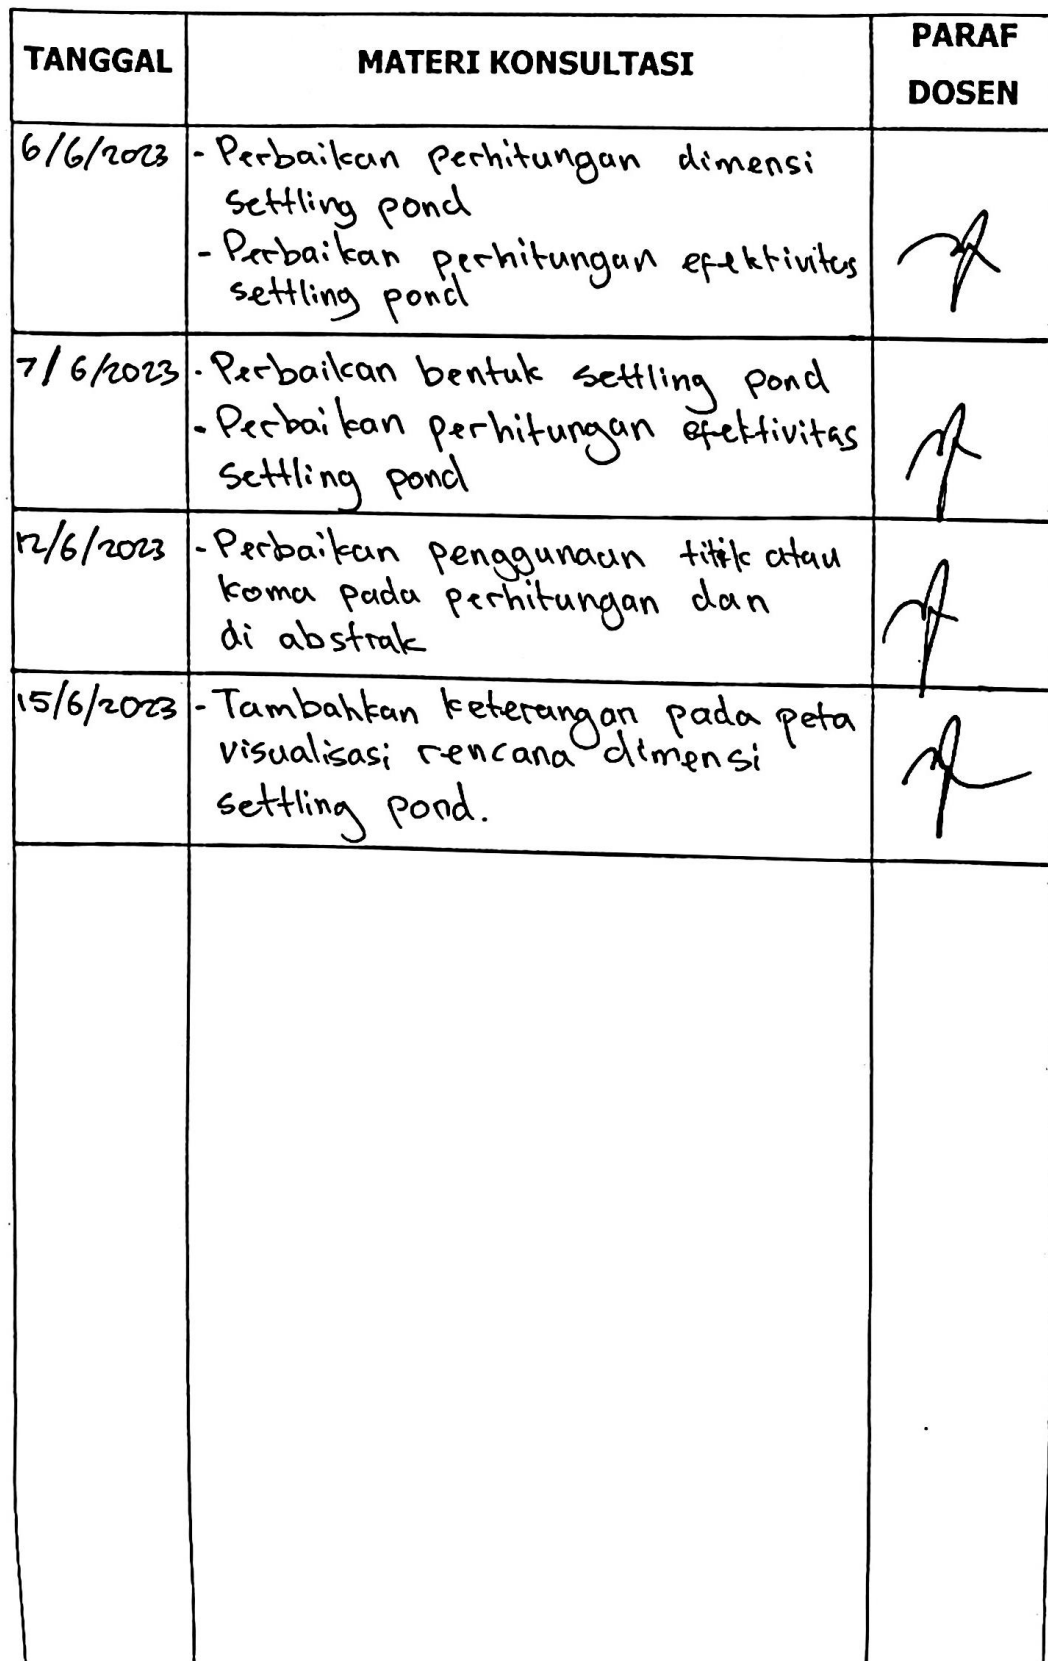 TANGGAL MATERI KONSULTASI PARAF DOSEN
6/6/2023 - Perbaikan perhitungan dimensi
settling pond
- Perbaikan perhitungan efektivitas
settling pond
7/6/2023 - Perbaikan bentuk settling pond
- Perbaikan perhitungan efektivitas
settling pond
12/6/2023 - Perbaikan penggunaan titik atau
koma pada perhitungan dan
di abstrak
15/6/2023 - Tambahkan keterangan pada peta
visualisasi rencana dimensi
settling pond.